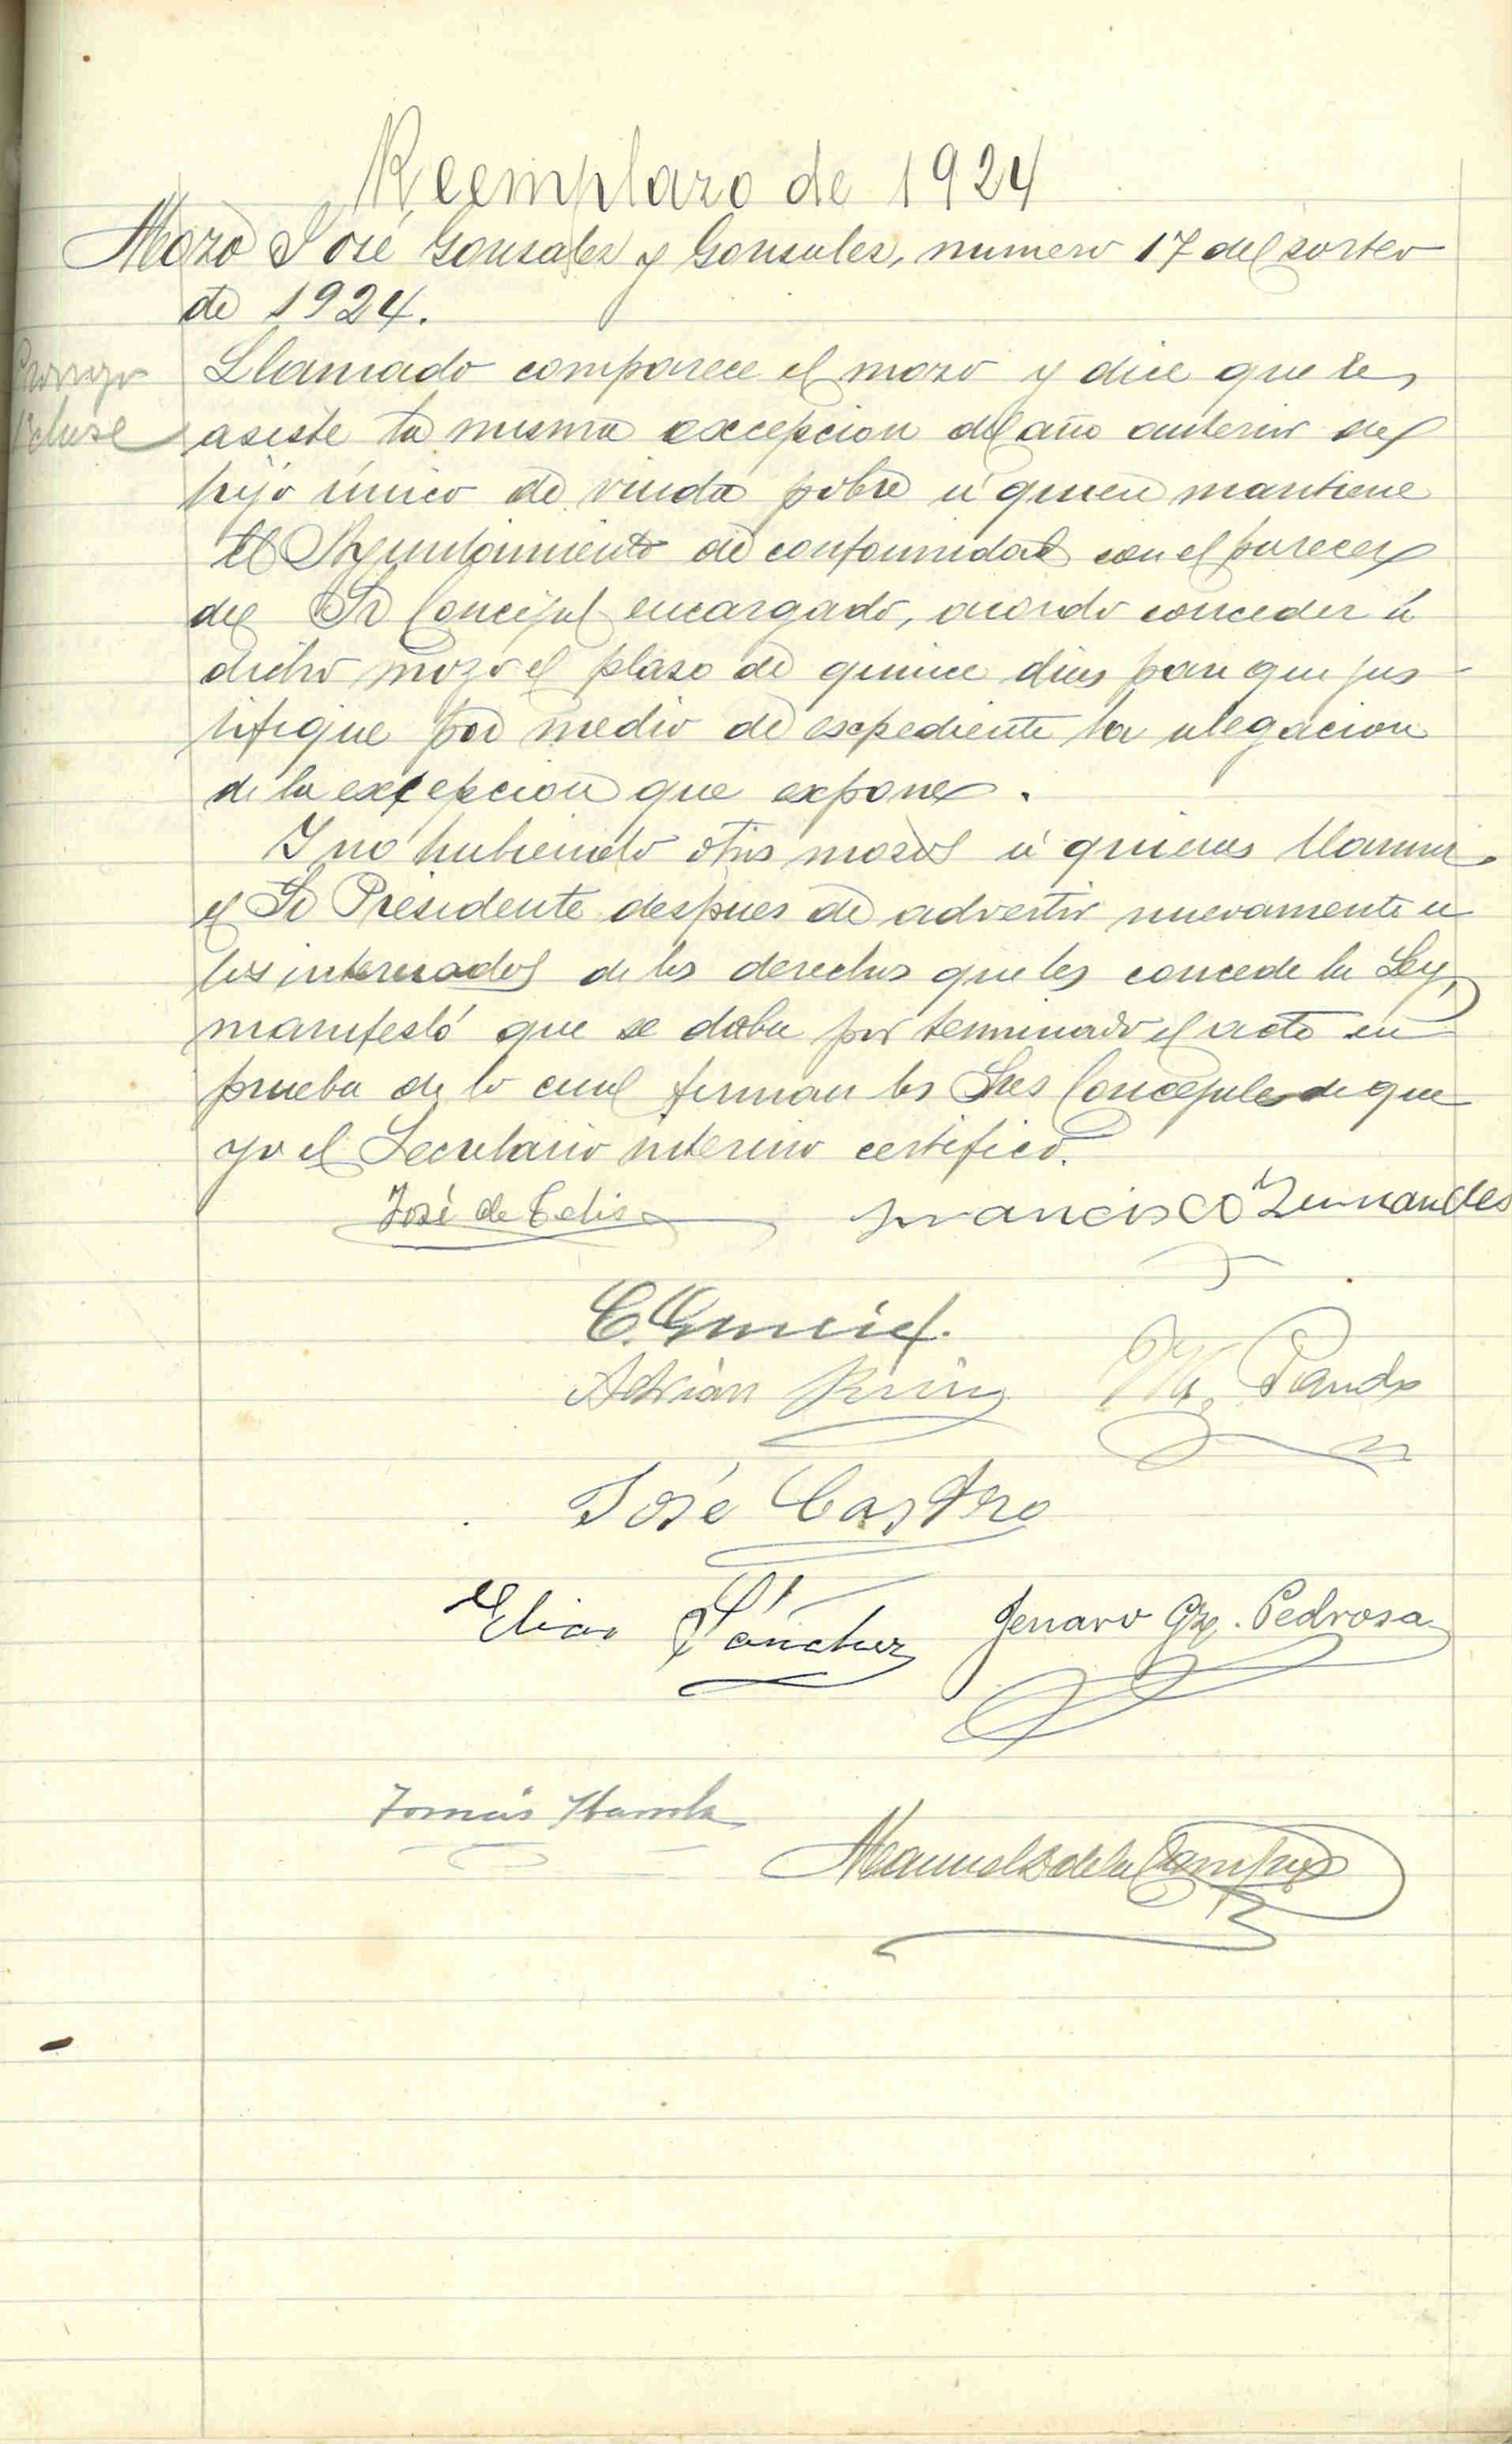 Reemplazo de 1924
Mozo José Gonzalez y Gonzales, numero 17 del sorteo
de 1924.
Llamado comparece el mozo y dice que le
asiste la misma excepcion del año anterior de
hijo único de viuda pobre á quien mantiene
El Ayuntamiento de conformidad con el parecer
del Sr Concejal encargado, acordo conceder á
dicho mozo el plazo de quince dias para que jus
tifique por medio de expediente la alegacion
de la excepcion que expone.
Y no habiendo otros mozos á quienes llamar
el Sr Presidente despues de advertir nuevamente a
los interesados de los derechos que les concede la Ley,
manifestó que se daba por terminado el acto en
prueba de lo cual firman los Sres Concejales de que
yo el Secretario interino certifico.
Prorroga
1ª clase
José de Celis
Francisco Fernandes
Adrian
M. Pando
José Castro
Elias Sánchez
Jenaro Gz. Pedrosa
Tomás
Manuel de la Campa